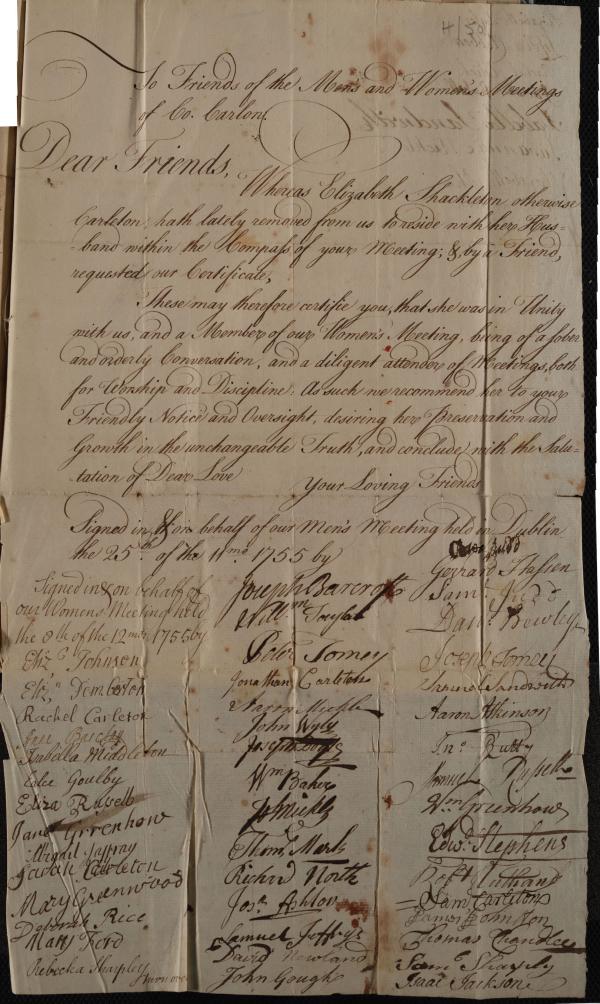 To Friends of the Mens and Womens Meetings
of Co. Carlow.
Dear Friends,
Whereas Elizabeth Shackleton otherwise
Carleton, hath lately removed from us to reside with her Hus-
-band within the Compass of your Meeting; & by a Friend,
requested our Certificate,
These may therefore certifie you, that she was in Unity
with us, and a Member of our Women's Meeting, being of a sober
and orderly Conversation, and a diligent attender of Meetings, both
for Worship and Discipline. As such we recommend her to your
Friendly Notice and Oversight, desiring her Preservation and
Growth in the unchangeable Truth, and conclude with the Salu-
tation of Dear Love
Your Loving Friends
Signed in & on behalf of our Men's Meeting held in Dublin
the 25th of the 11mo 1755 by
Signed in & on behalf of
our Womens Meeting held
the 8th of the 12mo 1755 by
Eliz. Johnson
Eliz. Pemberton
Rachel Carleton
Isabella Middleton
Goulby
Eliza Russell
Jane Greenhow
Abigail Jaffray
Sarah Carleton
Mary Greenwood
Deborah Rice
Mary Ford
Rebecka Sharpley
turn over
Joseph Barcroft
Will Taylor
Peter Tomey
Jonathan Carleton
John Wyly
Wm Baker
Richd North
Jos. Ashton
Samuel Jeffreys
David Newland
John Gough
Gerrard
Sam. Judd
Dan. Bewley
Joseph Tomey
Sandwith
Aaron Atkinson
Jno. Rutty
Samuel Russell
Wm Greenhow
Edwd. Stephens
Sam Carleton
James Johnston
Thomas Chandlee
Sam. Sharply
Isaac Jackson